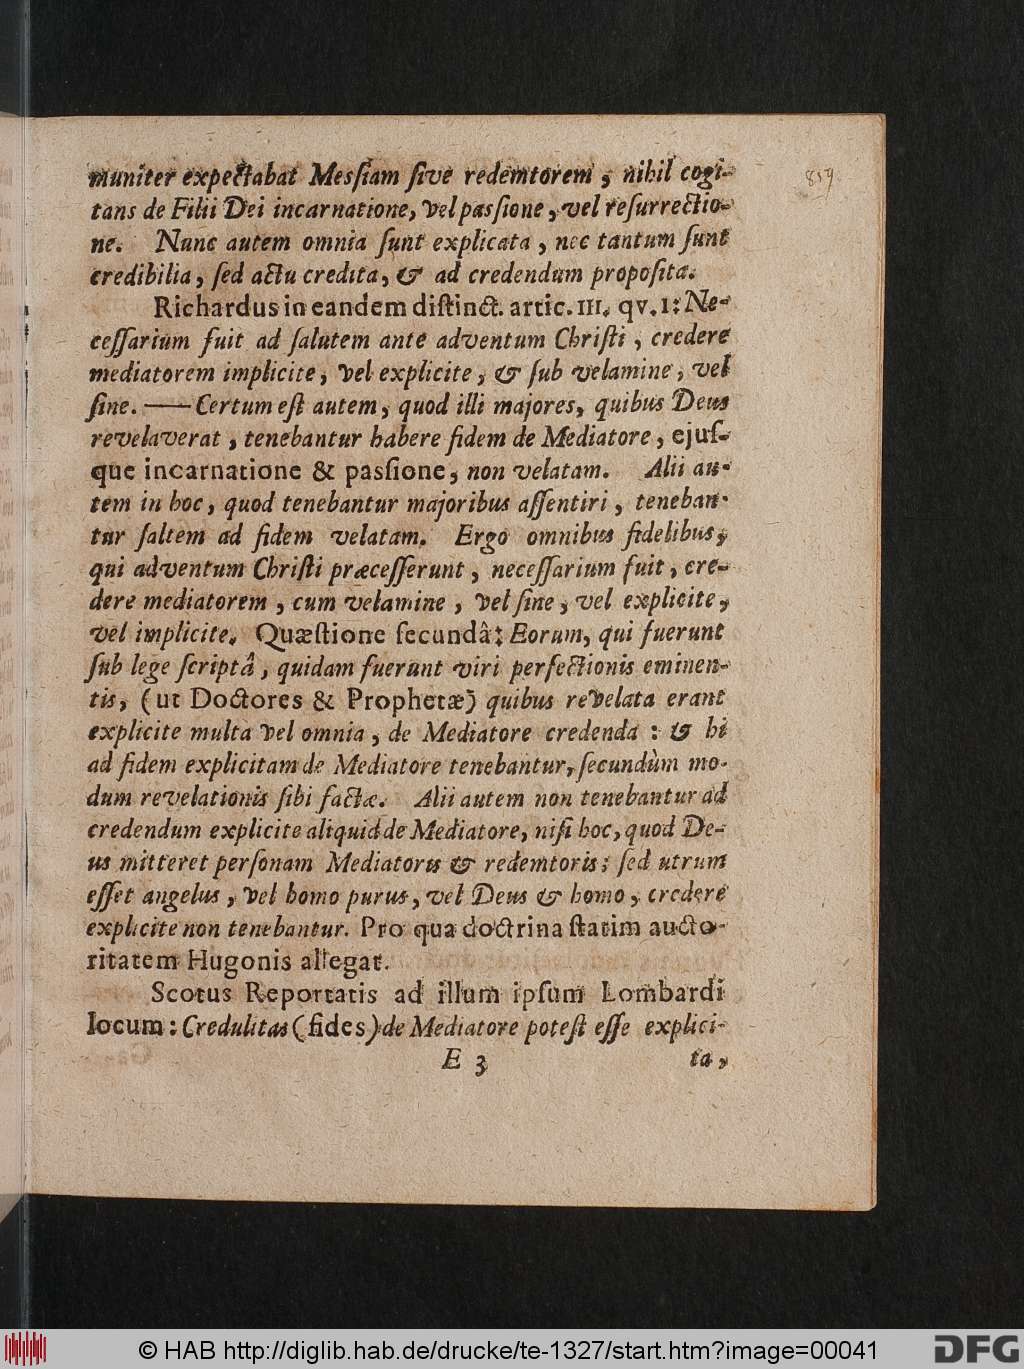 muniter expectabat Mesſiam ſive redemtorem, nihil cogi-
tans de Filii Dei incarnatione, vel pasſione, vel reſurrectio-
ne. Nunc autem omnia ſunt explicata, nec tantum ſunt
credibilia, ſed actu credita, & ad credendum propoſita.
Richardus in eandem diſtinct. artic. III. qv. 1: Ne-
ceſſarium fuit ad ſalutem ante adventum Chriſti, credere
mediatorem implicite, vel explicite, & ſub velamine, vel
ſine. —— Certum eſt autem, quod illi majores, quibus Deus
revelaverat, tenebantur habere fidem de Mediatore, ejuſ-
que incarnatione & pasſione, non velatam. Alii au-
tem in hoc, quod tenebantur majoribus aſſentiri, teneban-
tur ſaltem ad fidem velatam. Ergo omnibus fidelibus,
qui adventum Chriſti præceſſerunt, neceſſarium fuit, cre-
dere mediatorem, cum velamine, vel ſine, vel explicite,
vel implicite. Quæſtione ſecundâ: Eorum, qui fuerunt
ſub lege ſcriptâ, quidam fuerunt viri perfectionis eminen-
tis, (ut Doctores & Prophetæ) quibus revelata erant
explicite multa vel omnia, de Mediatore credenda: & hi
ad fidem explicitam de Mediatore tenebantur, ſecundùm mo-
dum revelationis ſibi factæ. Alii autem non tenebantur ad
credendum explicite aliquid de Mediatore, niſi hoc, quod De-
us mitteret perſonam Mediatoris & redemtoris; ſed utrum
eſſet angelus, vel homo purus, vel Deus & homo, credere
explicite non tenebantur. Pro qua doctrina ſtatim aucto-
ritatem Hugonis allegat.
Scotus Reportatis ad illum ipſum Lombardi
locum: Credulitas (fides) de Mediatore poteſt eſſe explici-
E 3 ta,
© HAB http://diglib.hab.de/drucke/te-1327/start.htm?image=00041
DFG